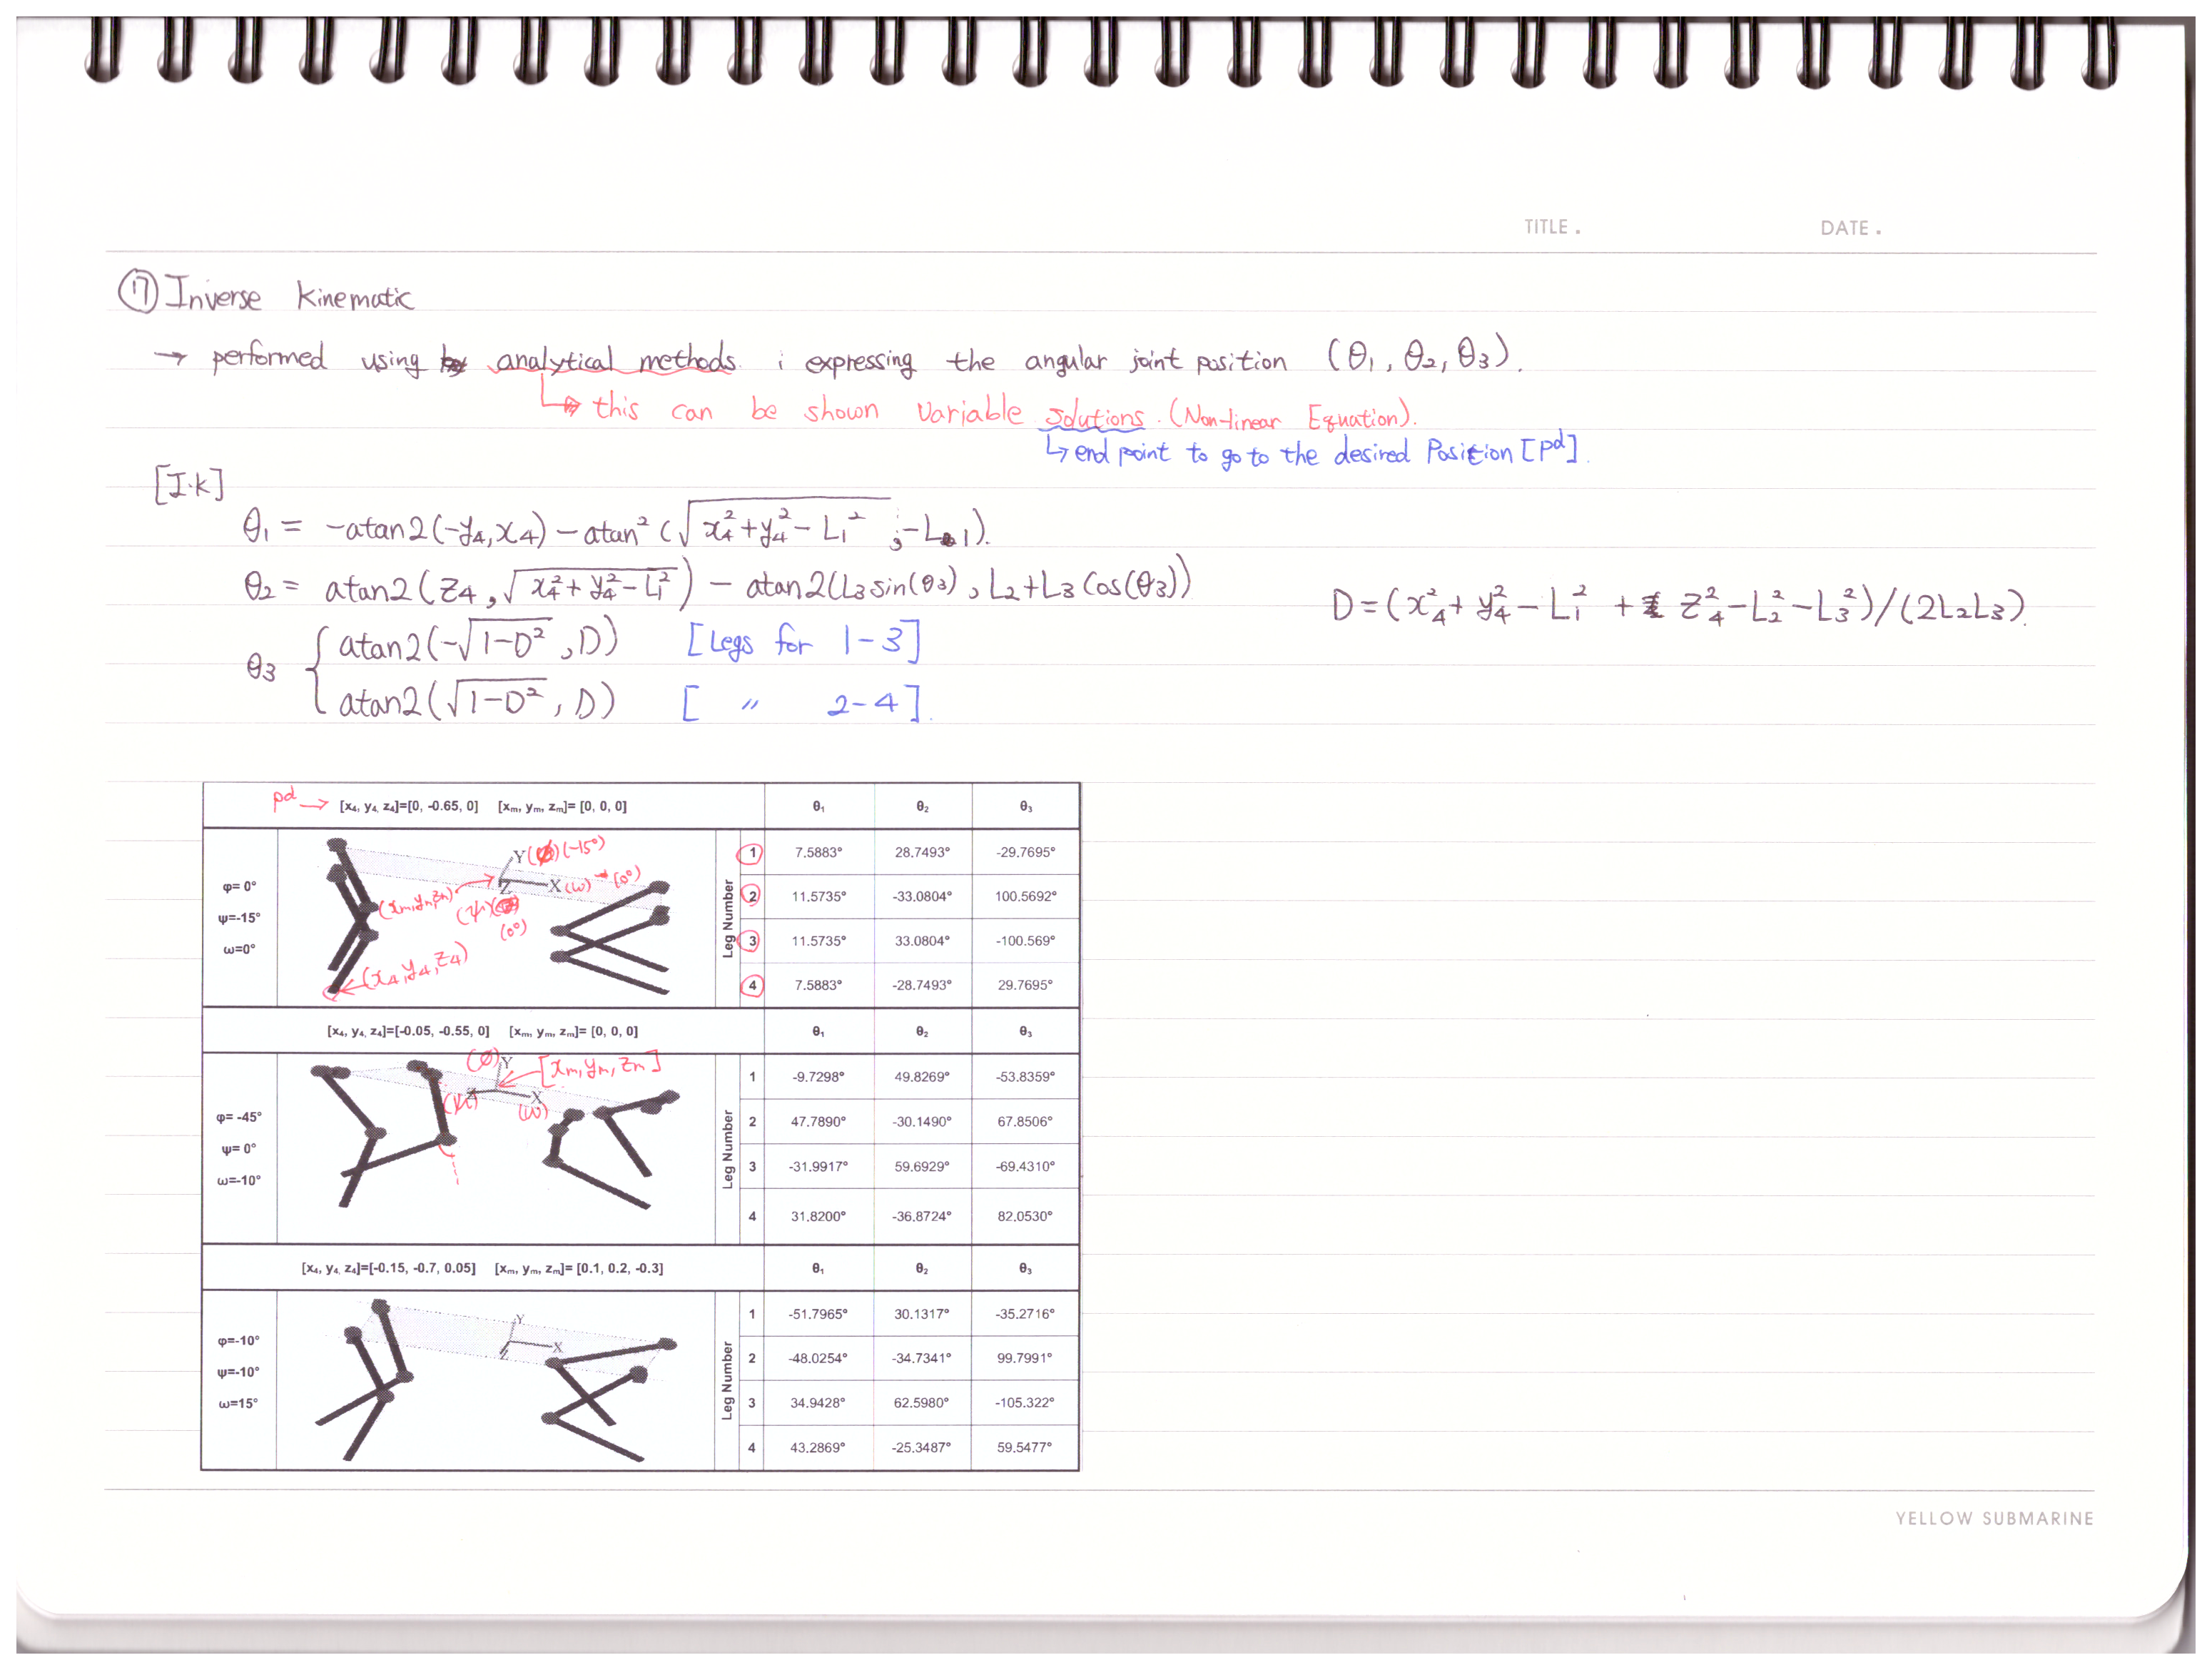 TITLE . DATE .
⑰ Inverse Kinematic
→ performed using analytical methods. ; expressing the angular joint position (θ1, θ2, θ3).
↳ this can be shown variable solutions. (Non-linear Equation).
↳ end point to go to the desired Position [pd].
[I.K]
θ1 = -atan2(-y4, x4) - atan² (√(x4² + y4² - L1²) , -L1).
θ2 = atan2(z4, √(x4² + y4² - L1²)) - atan2(L3 sin(θ3), L2+L3 Cos(θ3))
D = (x4² + y4² - L1² + z4² - L2² - L3²)/(2L2L3).
θ3 { atan2(-√(1-D²), D) [Legs for 1-3]
atan2(√(1-D²), D) [ 〃 2-4].
pd → [x4, y4, z4]=[0, -0.65, 0] [xm, ym, zm]= [0, 0, 0] θ1 θ2 θ3
φ= 0°
ψ=-15°
ω=0°
Y (-15°)
X (ω) (0°)
Z (ψ)
(0°)
(xm,ym,zm)
(x4, y4, z4)
Leg Number
1 7.5883° 28.7493° -29.7695°
2 11.5735° -33.0804° 100.5692°
3 11.5735° 33.0804° -100.569°
4 7.5883° -28.7493° 29.7695°
[x4, y4, z4]=[-0.05, -0.55, 0] [xm, ym, zm]= [0, 0, 0] θ1 θ2 θ3
φ= -45°
ψ= 0°
ω=-10°
(∅) Y [xm, ym, zm]
(ψ) Z X
(ω)
Leg Number
1 -9.7298° 49.8269° -53.8359°
2 47.7890° -30.1490° 67.8506°
3 -31.9917° 59.6929° -69.4310°
4 31.8200° -36.8724° 82.0530°
[x4, y4, z4]=[-0.15, -0.7, 0.05] [xm, ym, zm]= [0.1, 0.2, -0.3] θ1 θ2 θ3
φ=-10°
ψ=-10°
ω=15°
Y
X
Z
Leg Number
1 -51.7965° 30.1317° -35.2716°
2 -48.0254° -34.7341° 99.7991°
3 34.9428° 62.5980° -105.322°
4 43.2869° -25.3487° 59.5477°
YELLOW SUBMARINE